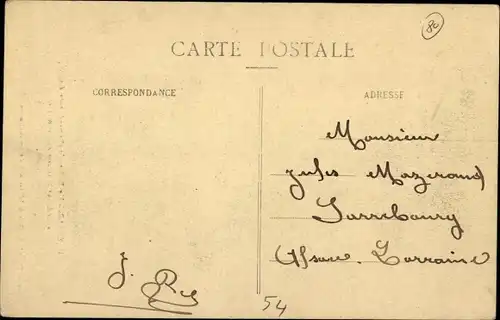 80
CARTE POSTALE
CORRESPONDANCE
ADRESSE
Monsieur
Jules Mazerand
Sarrebourg
Alsace. Lorraine
J. Rey
54